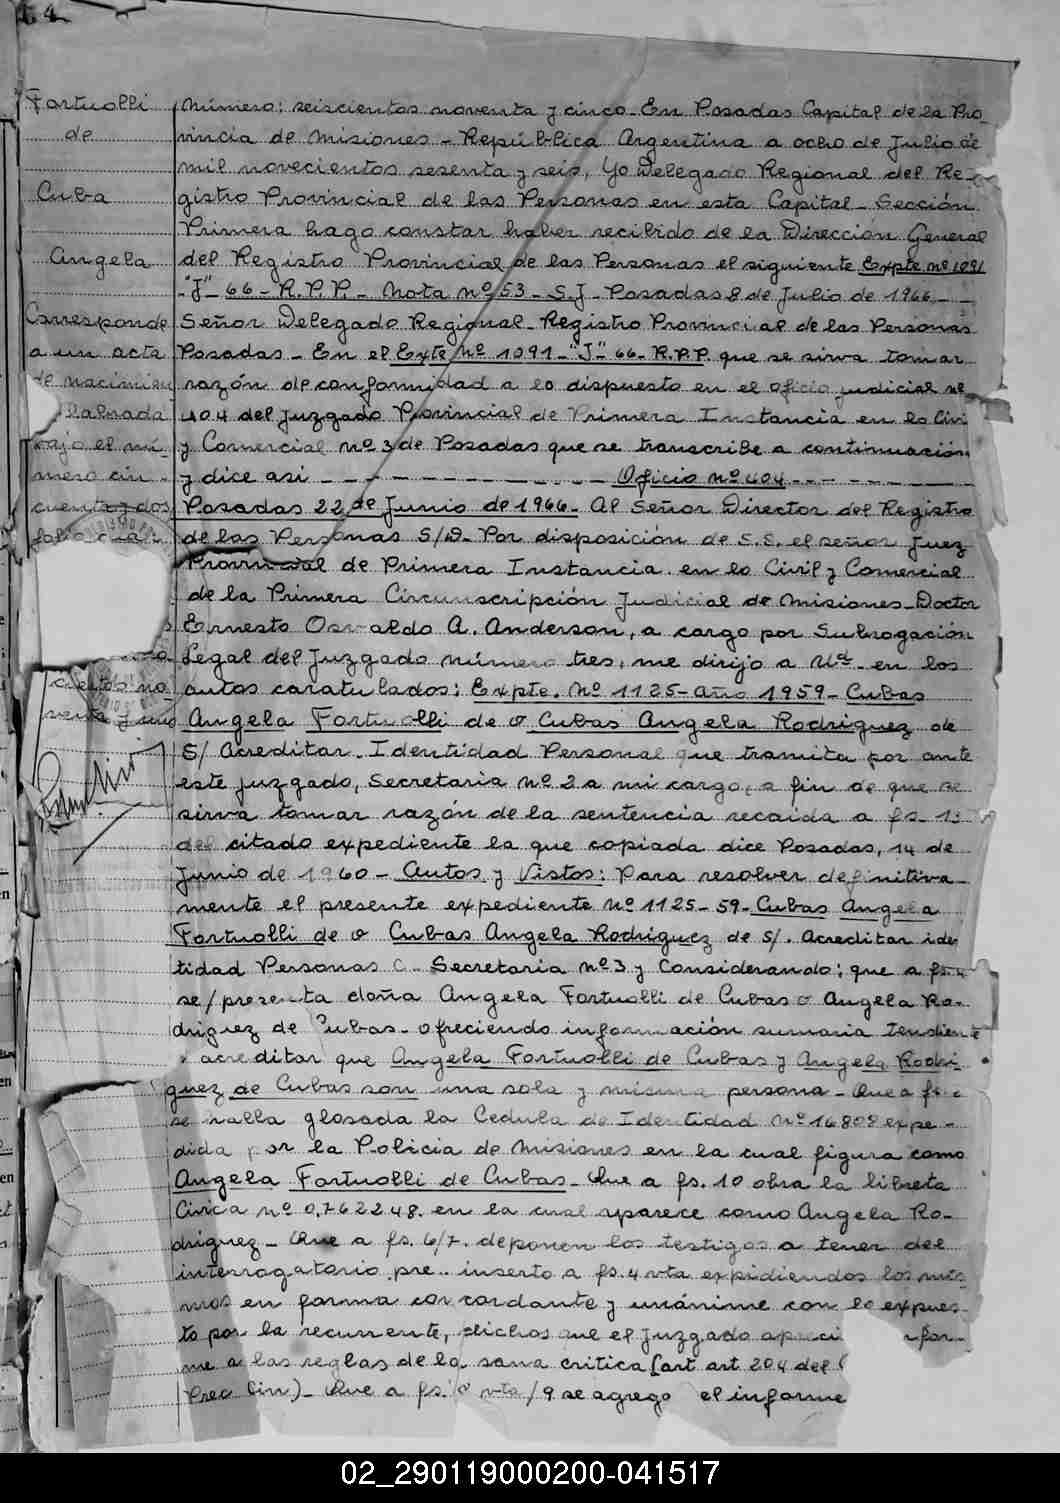 Fortuolli
de
Cuba
Angela
Corresponde
a un acta
de nacimien
labrada
bajo el nú-
mero cin-
cuenta y dos
folio
cientos no
venta y uno
Número: seiscientos noventa y cinco. En Posadas Capital de la Pro-
vincia de Misiones - República Argentina a ocho de Julio de
mil novecientos sesenta y seis, Yo Delegado Regional del Re-
gistro Provincial de las Personas en esta Capital - Sección
Primera hago constar haber recibido de la Dirección General
del Registro Provincial de las Personas el siguiente Expte nº 1091
"J" - 66 - R.P.P. - Nota nº 53 - S.J. - Posadas 8 de Julio de 1966 - -
Señor Delegado Regional - Registro Provincial de las Personas
Posadas - En el Exte Nº 1091 - "J" - 66 - R.P.P. que se sirva tomar
razón de conformidad a lo dispuesto en el oficio judicial nº
404 del Juzgado Provincial de Primera Instancia en lo Civil
y Comercial nº 3 de Posadas que se transcribe a continuación
y dice asi - - - - - - - - - - - - Oficio nº 404 - - - - - - -
Posadas 22 de Junio de 1966 - Al Señor Director del Registro
de las Personas S/D. Por disposición de S.S. el señor Juez
Provincial de Primera Instancia en lo Civil y Comercial
de la Primera Circunscripción Judicial de Misiones - Doctor
Ernesto Osvaldo A. Anderson, a cargo por Subrogación
Legal del Juzgado número tres, me dirijo a Ud. en los
autos caratulados: Expte. Nº 1125 - año 1959 - Cubas
Angela Fortuolli de o Cubas Angela Rodriguez de
S/ Acreditar Identidad Personal que tramita por ante
este juzgado, Secretaria nº 2 a mi cargo, a fin de que se
sirva tomar razón de la sentencia recaida a fs. 13
del citado expediente la que copiada dice Posadas, 14 de
Junio de 1960 - Autos y Vistos: Para resolver definitiva-
mente el presente expediente nº 1125 - 59 - Cubas Angela
Fortuolli de o Cubas Angela Rodriguez de S/. Acreditar iden
tidad Personas Secretaria nº 3 y Considerando; que a fs. 4
se/presenta doña Angela Fortuolli de Cubas o Angela Ro-
driguez de Cubas - ofreciendo información sumaria tendiente
a acreditar que Angela Fortuolli de Cubas y Angela Rodri-
guez de Cubas son una sola y misma persona - Que a fs.
se halla glosada la Cedula de Identidad Nº 16809 expe-
dida por la Policia de Misiones en la cual figura como
Angela Fortuolli de Cubas - Que a fs. 10 obra la libreta
Civica nº 0.762248. en la cual aparece como Angela Ro-
driguez - Que a fs. 6/7. deponen los testigos a tener del
interrogatorio pre inserto a fs. 4 vta expidiendos los mis-
mos en forma concordante y unánime con lo expues-
to por la recurrente, dichos que el Juzgado confor-
me a las reglas de la sana critica (art. art. 204 del
Proc Civ.) - Que a fs. 8 vta/9 se agrego el informe
02_290119000200-041517